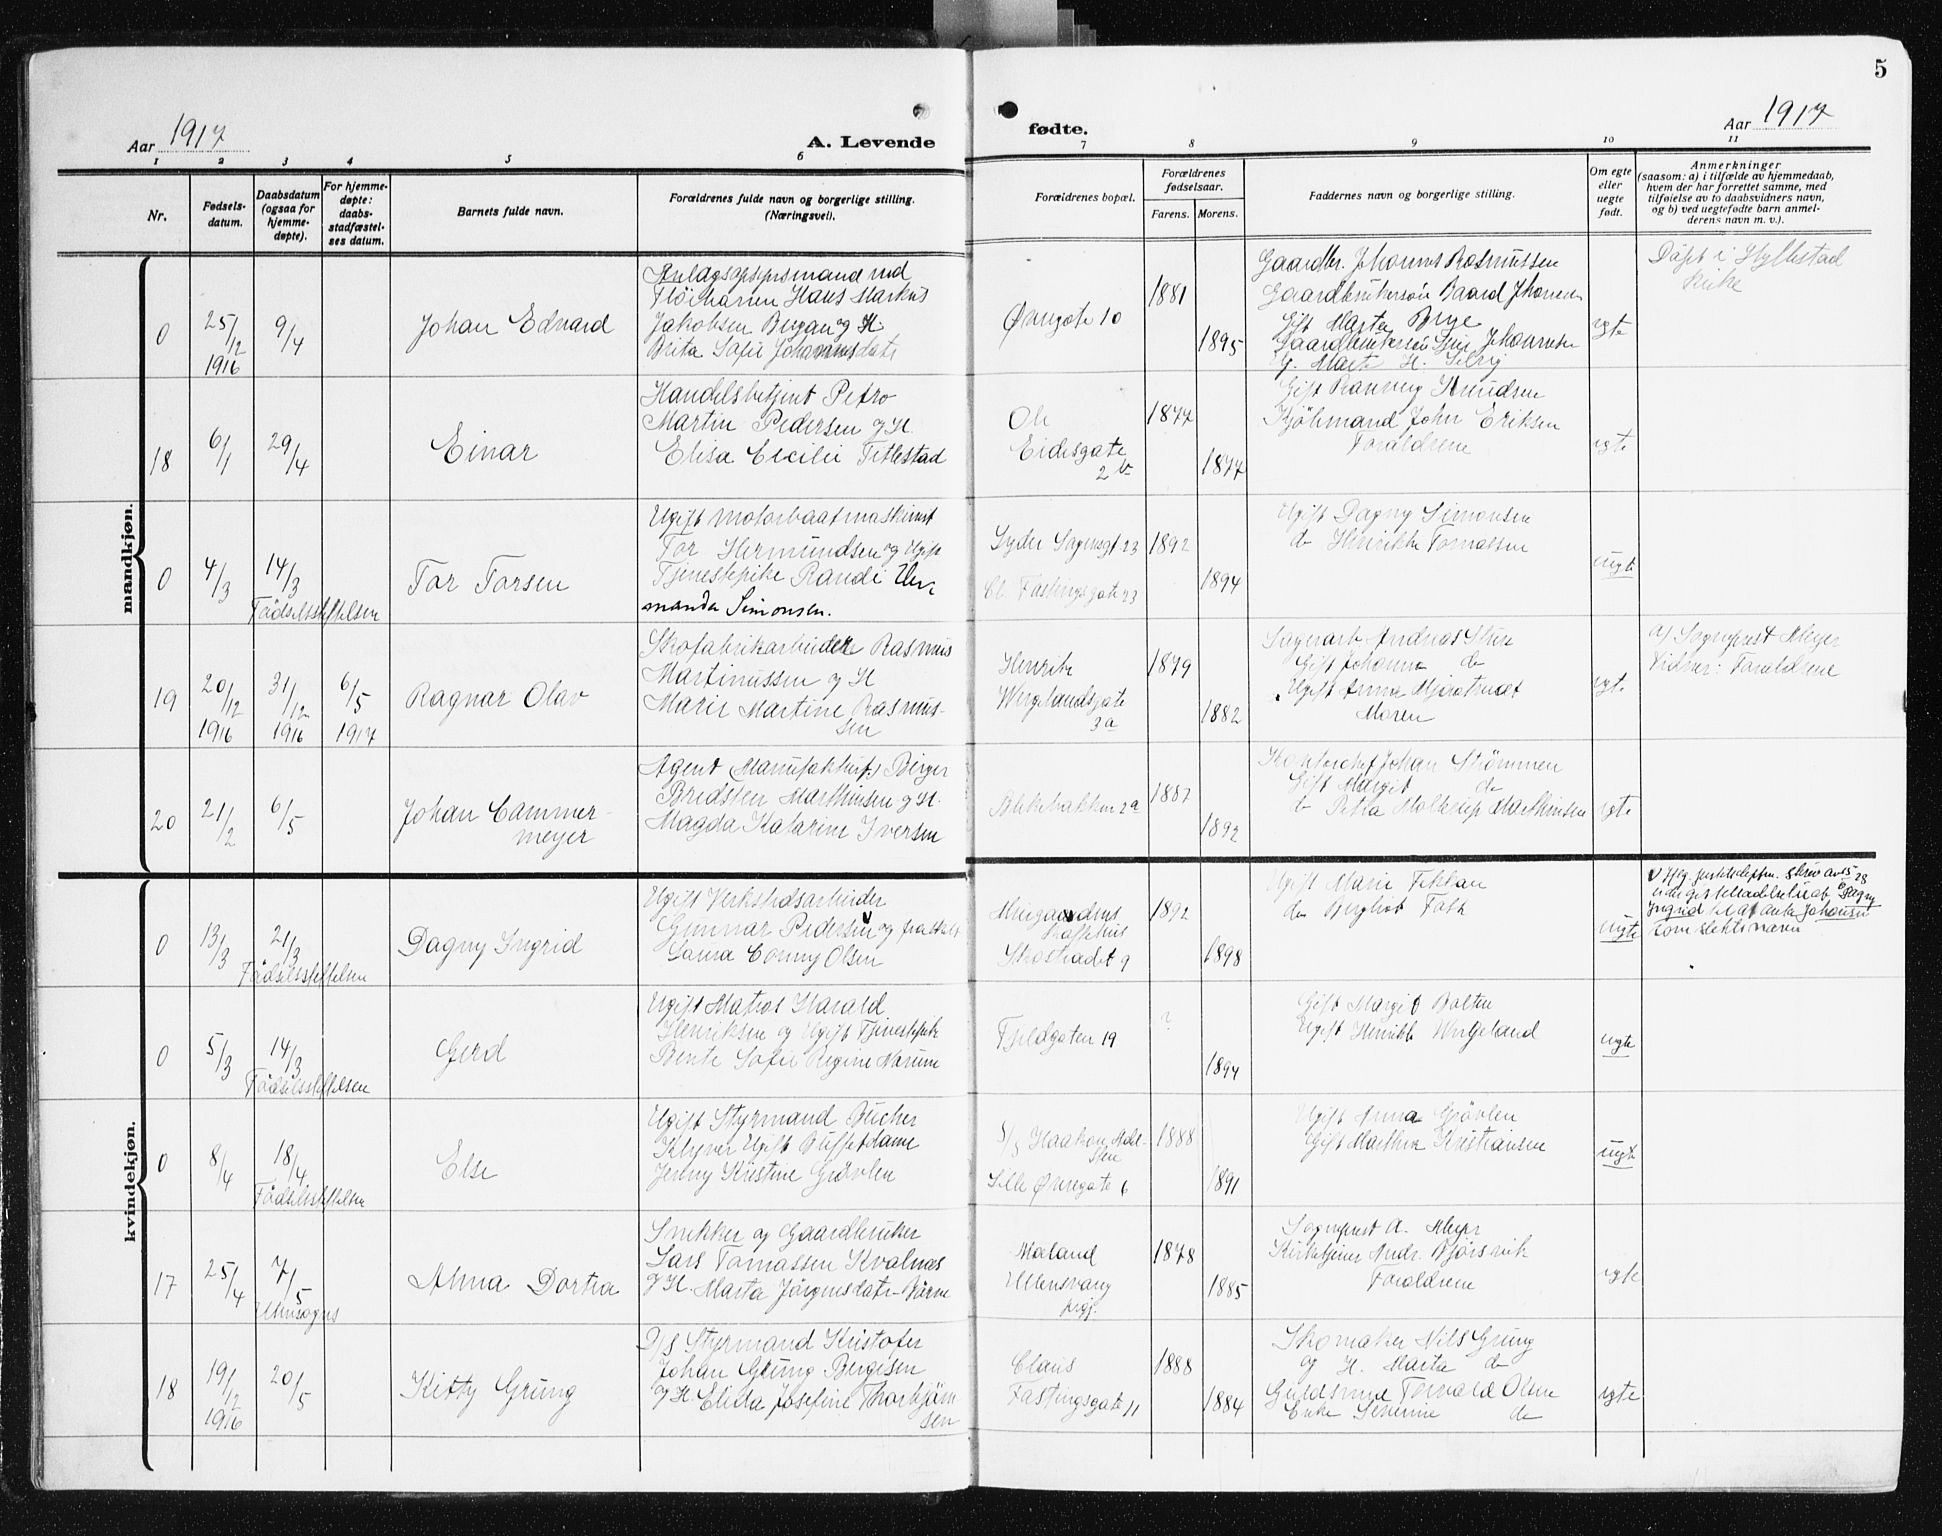 5
Aar 1917
A. Levende
fødte.
Aar 1917
1 2 3 4 5 6 7 8 9 10 11
Nr.
Fødsels-
datum.
Daabsdatum
(ogsaa for
hjemme-
døpte).
For hjemme-
døpte:
daabs-
stadfæstel-
ses datum.
Barnets fulde navn.
Forældrenes fulde navn og borgerlige stilling.
(Næringsvei).
Forældrenes bopæl.
Forældrenes
fødselsaar.
Farens. Morens.
Faddernes navn og borgerlige stilling.
Om egte
eller
uegte
født.
Anmerkninger
(saasom: a) i tilfælde av hjemmedaab,
hvem der har forrettet samme, med
tilføielse av to daabsvidners navn,
og b) ved uegtefødte barn anmel-
derens navn m. v.).
mandkjøn.
0
25/12
1916
9/4
Johan Edvard
Fløibanen Hans Markus
Jakobsen Bergan og H.
Brita Sofie Johannesdatr
Øvregate 10
1881
1895
Gaardbr. Johannes Rasmussen
Gaardbrukersøn Baard Johannes
Gift Marta Brye
egte
Døpt i Hyllestad
kirke
18
6/1
29/4
Einar
Handelsbetjent Petro
Martin Pedersen og H.
Elisa Cecilie Titlestad
Ole
Eidesgate
2b
1877
1877
Gift Rannveig Knudsen
Kjøbmand John Eriksen
Forældrene
egte
0
4/3
14/3
Fødselsstiftelsen
Tor Torsen
Ugift Motorbaatmaskinist
Tor Hermundsen og Ugift
Tjenestepike Randi Her-
manda Simonsen.
Lyder Sagensgt 23
Cl. Fastingsgate 23
1892
1894
Ugift Dagny Simonsen
do Henrikke Tomassen
uegte
19
20/12
1916
31/12
1916
6/5
1917
Ragnar Olav
Skofabrikarbeider Rasmus
Martinussen og H
Marie Martine Rasmus-
sen
Henrik
Wergelandsgate
3a
1879
1882
Sagerarb Andreas Sture
Gift Johanna do
Ugift Anna
Moren
egte
a) Sogneprest Meyer
Vidner: Forældrene
20
21/2
6/5
Johan Cammer-
meyer
Agent (Manufaktur) Birger
Bredsten Marthinsen og H.
Magda Katarine Iversen
Blekebakken 2a
1887
1892
Kontorchef Johan Strømmen
Gift Margit do
do Petra Moltrup Marthinsen
egte
kvindekjøn.
0
13/3
21/3
Fødselsstiftelsen
Dagny Ingrid
Ugift Verkstedsarbeider
Gunnar Pedersen og fraskilt
Laura Conny Olsen
Skostrædet 9
1892
1898
Ugift Marie
do Bergliot Falk
uegte
Ingrid
som slektsnavn
0
5/3
14/3
Fødselsstiftelsen
Gerd
Ugift Matros Harald
Henriksen og Ugift Tjenestepik
Bente Sofie Regine Narum
Fjeldgaten 19
?
1894
Gift Margit Bolten
Ugift Henrikke Wergeland
uegte
0
8/4
18/4
Fødselsstiftelsen
Else
Ugift Styrmand Bücher
Klyver Ugift Buffetdame
Jenny Kristine Grøvlen
S/S Haakon Adel-
sten
Lille Øvregate 6
1888
1891
Ugift Anna Grøvlen
Gift Marthea Kristiansen
uegte
17
25/4
7/5
Utensogns
Anna Dortea
Snekker og Gaardbruker
Lars Tomassen Kvalnæs
og H. Marta Jørgensdatr Børve
Mæland
Ullensvang
prgj.
1878
1885
Sogneprest A. Meyer
Kirketjener Andr. Bjørsvik
Forældrene
egte
18
19/12
1916
20/5
Kitty Grung
D/S Styrmand Kristofer
Johan Grung Bergesen
og H. Elida Josefine Thorbjørn
sen
Claus
Fastingsgate 11
1888
1884
Skomaker Nils Grung
og H. Marta do
Guldsmed Torvald Olsen
Enke Severine do
egte